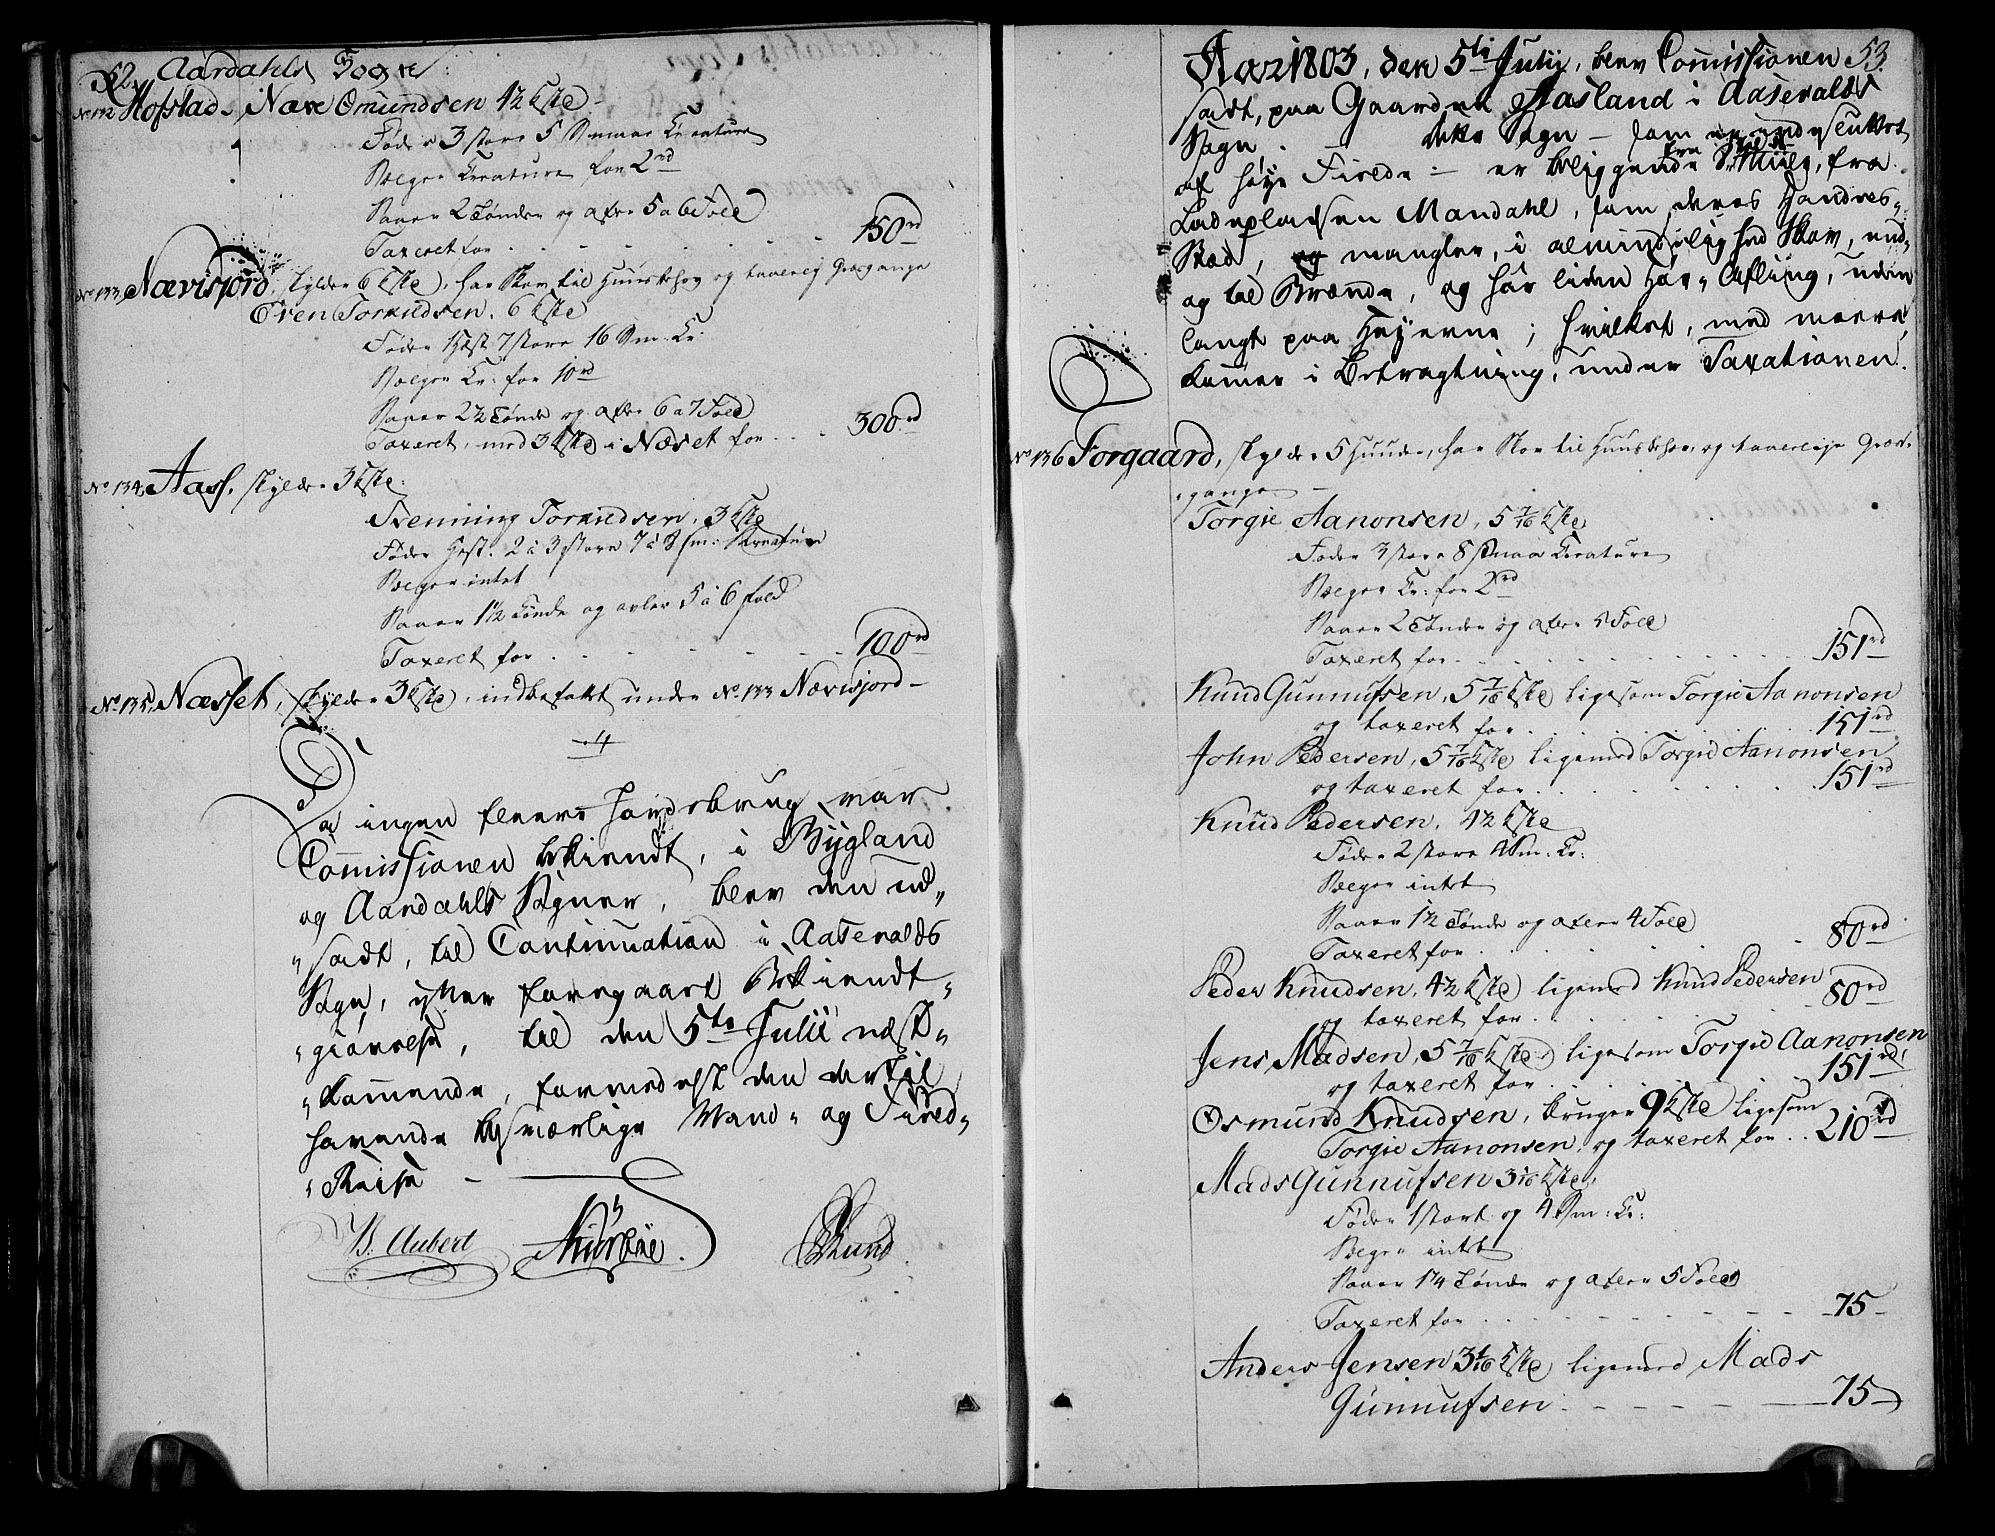 52. Aardahls Sogn
No 132 Hofstad. Næve Omundsen 4½ Kse
Føder 3 store 5 Smaae Kreature
Sælger Kreature for 2rd
Saaer 2 Tønder og avler 5 a 6 Fold
Taxeret for . . . . . 150rd
No 133 Nævisjord, skylder 6 Kse, har Skov til Huusbehov og taalelig Græsgange
Even Torkildsen. 6 Kse
Føder 1 Hæst 7 store 16 Sm: Kr:
Sælger Kr: for 10rd
Saaer 2½ Tønde og avler 6 a 7 Fold
Taxeret, med 3 Kse i Næset for . . . 300rd
No 134 Aass. skylder 3 Kse.
Trenning Torkildsen. 3 Kse
Føder Hest. 2 à 3 store 7 à 8 sm: Kreature
Sælger intet
Saaer 1½ Tønde og avler 5 à 6 fold
Taxeret for . . . . . . 100rd
No 135 Næsset, skylder 3 Kse, indbefattet under No 133 Nævisjord –
Da ingen fleere Jordebrug var
Commissionen bekiendt, i Bygland
og Aardahls Sogner, blev den ud-
-sadt, til Continuation i Aaseralds
Sogn, efter foregaaet Bekiendt-
-giørelse, til den 5te Julii næst-
-kommende, formedelst den dertil
havende besværlige Vand- og Field-
-Reise –
B: Aubert
Lund
53.
Aar 1803, den 5te Julii, blev Commissionen
sadt, paa Gaarden Aasland i Aaseralds
Sogn. - dette Sogn – som er indesluttet
af høye Fielde – er beliggende 8 Miile, fra
Ladepladsen Mandahl, som deres Handels-
Stæd, og mangler, i almindelighed Skov, end-
og til Brænde, og har liden Høe-Avling, uden
langt paa Heyerne; hvilket, med meere,
kommer i Betragtning, under Taxationen.
No 136 Forgaard, skylder 5 Huuder, har Skov til Huusbehov, og taalelige Græs-
-gange –
Torgie Aanonsen, 5 7/16 Kse
Føder 3 store 8 smaae Kreature
Sælger Kr: for 2rd
Saaer 2 Tønder og avler 5 Fold
Taxeret for . . . . . . 151rd
Knud Gunnufsen, 5 7/16 Kse ligesom Torgie Aanonsen
og taxeret for . . . . . . 151rd
John Pedersen, 5 7/16 Kse ligemed Torgie Aanonsen
og taxeret for . . . . . . 151rd
Knud Pedersen. 4½ Kse
Føder 2 store 4 Sm: Kr:
Sælger intet
Saaer 1½ Tønde og avler 4 Fold
Taxeret for . . . . . . 80rd
Peder Knudsen, 4½ Kse ligemed Knud Pedersen
og taxeret for . . . . . . 80rd
Jens Madsen, 5 7/16 Kse ligesom Torgie Aanonsen
og taxeret for . . . . . . 151rd
Osmund Knudsen, bruger 9 Kse ligesom
Torgie Aanonsen, og taxeret for . . 210rd
Mads Gunnufsen 3 1/16 Kse
Føder 1 stort og 4 Sm: Kr:
Sælger intet
Saaer 1¼ Tønde og avler 5 Fold
Taxeret for . . . . . . 75
Anders Jensen 3 1/16 Kse ligemed Mads
Gunnufsen . . . . . 75